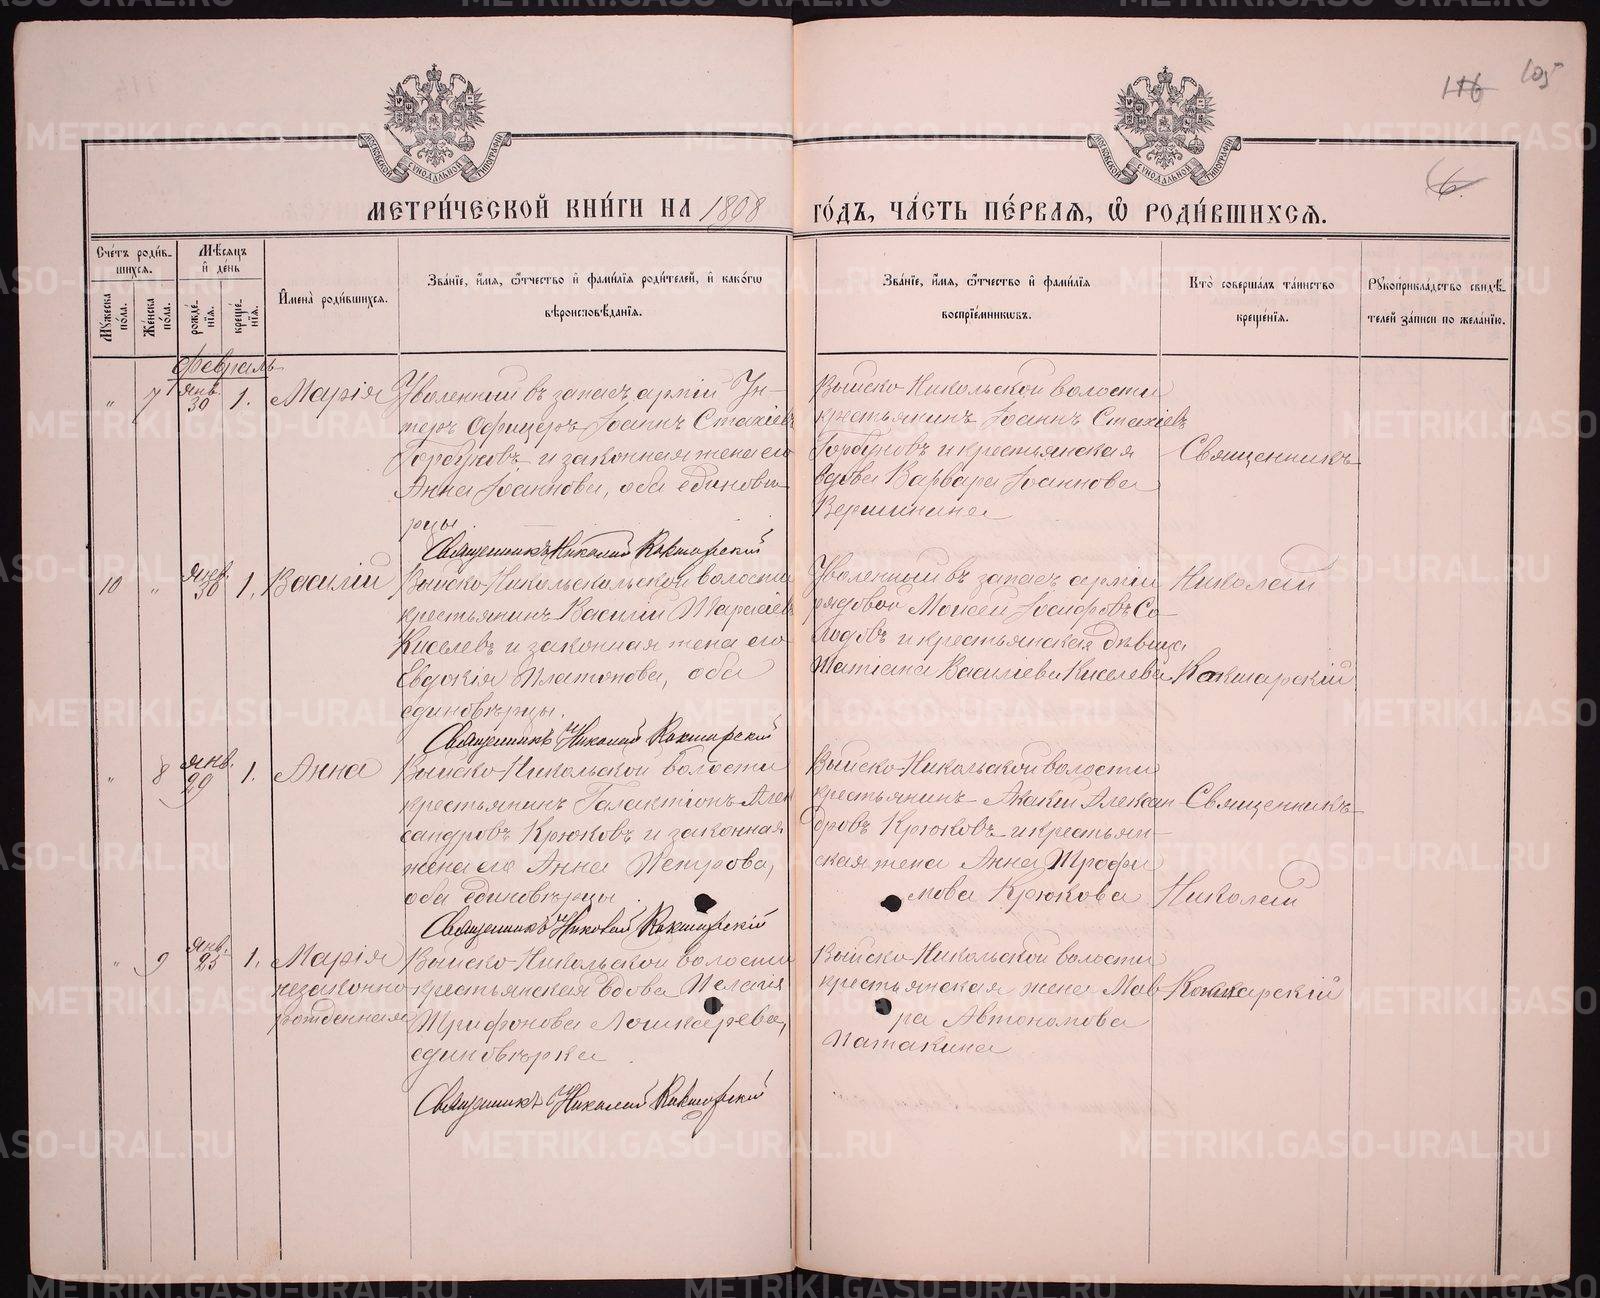 116 105
6.
МЕТРИ́ЧЕСКОЙ КНИ́ГИ НА 1898 ГО́ДЪ, ЧА́СТЬ ПЕ́РВАЯ, Ѡ РОДИ́ВШИХСЯ.
Сче́тъ роди́вшихся.
Мꙋ́жеска по́ла.
Же́нска по́ла.
Мѣ́сяцъ и де́нь
рожде́нїя.
креще́нїя.
Имена̀ роди́вшихся.
Зва́нїе, и́мя, ѻ҆́тчество и҆ фами́лїя роди́телей, и҆ како́гѡ
вѣроисповѣ́данїя.
Зва́нїе, и́мя, ѻ҆́тчество и҆ фами́лїя
воспрїе́мникѡвъ.
Кто̀ соверша́лъ та́инство
креще́нїя.
Рꙋкоприкла́дство свидѣ́-
телей за́писи по жела́нїю.
Февраль
" 7 янв. 30 1. Марія
Уволенный въ запасъ арміи Ун-
теръ Офицеръ Іоаннъ Стахіевъ
Горбуновъ и законная жена его
Анна Іоаннова, оба единовѣ-
рцы.
Священникъ Николай Кокшарскій
Выйско-Никольской волости
крестьянинъ Іоаннъ Стахіевъ
Горбуновъ и крестьянская
вдова Варвара Іоаннова
Вершинина
Священникъ
10 " янв. 30 1. Василій
Выйско-Никольскольской волости
крестьянинъ Василій
Киселевъ и законная жена его
Евдокія Платонова, оба
единовѣрцы.
Священникъ Николай Кокшарскій
Уволенный въ запасъ арміи
рядовой Моисей Іосифовъ Со-
лодовъ и крестьянская дѣвица
Татіана Василіева Киселева
Николай
Кокшарскій
" 8 янв. 29 1. Анна
Выйско-Никольской волости
крестьянинъ Галактіонъ Алек
сандровъ Крюковъ и законная
жена его Анна Петрова,
оба единовѣрцы.
Священникъ Николай Кокшарскій
Выйско-Никольской волости
крестьянинъ Акакій Алексан
дровъ Крюковъ и крестьян-
ская жена Анна Трофи
мова Крюкова
Священникъ
Николай
" 9 янв. 25 1. Марія
незаконно
рожденная
Выйско-Никольской волости
крестьянская вдова Пелагія
Трифонова Лошкарева,
единовѣрка.
Священникъ Николай Кокшарскій
Выйско-Никольской волости
крестьянская жена Мав
ра Автономова
Патакина
Кокшарскій
МОСКОВСКОЙ СѴНОДАЛЬНОЙ ТИПОГРАФІИ
МОСКОВСКОЙ СѴНОДАЛЬНОЙ ТИПОГРАФІИ
METRIKI.GASO-URAL.RU